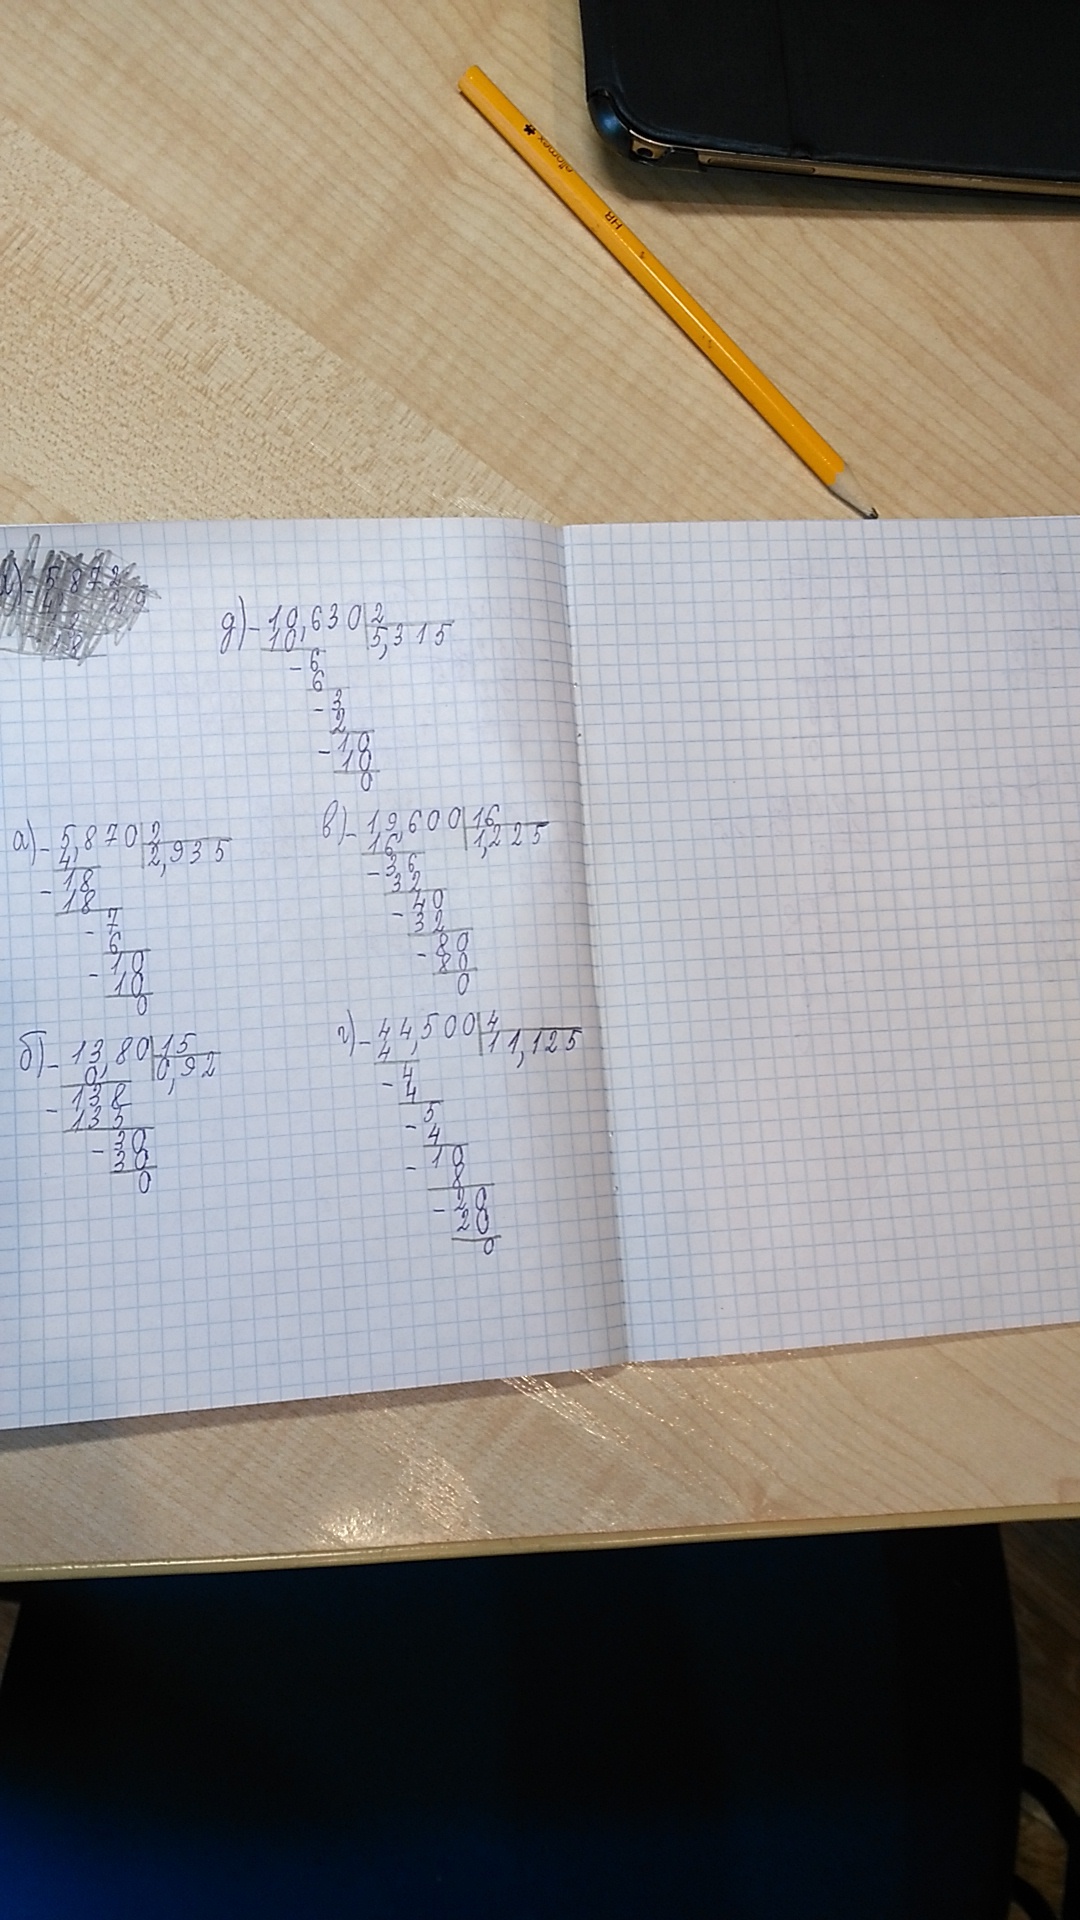 ollomex
HR
д) - 10,630 | 2
10 5,315
- 6
6
- 3
2
- 10
10
0
а) - 5,870 | 2
4 2,935
- 18
18
- 7
6
- 10
10
0
б) - 13,80 | 15
0 0,92
- 138
135
- 30
30
0
в) - 19,600 | 16
16 1,225
- 36
32
- 40
32
- 80
80
0
г) - 44,500 | 4
4 11,125
- 4
4
- 5
4
- 10
8
- 20
20
0